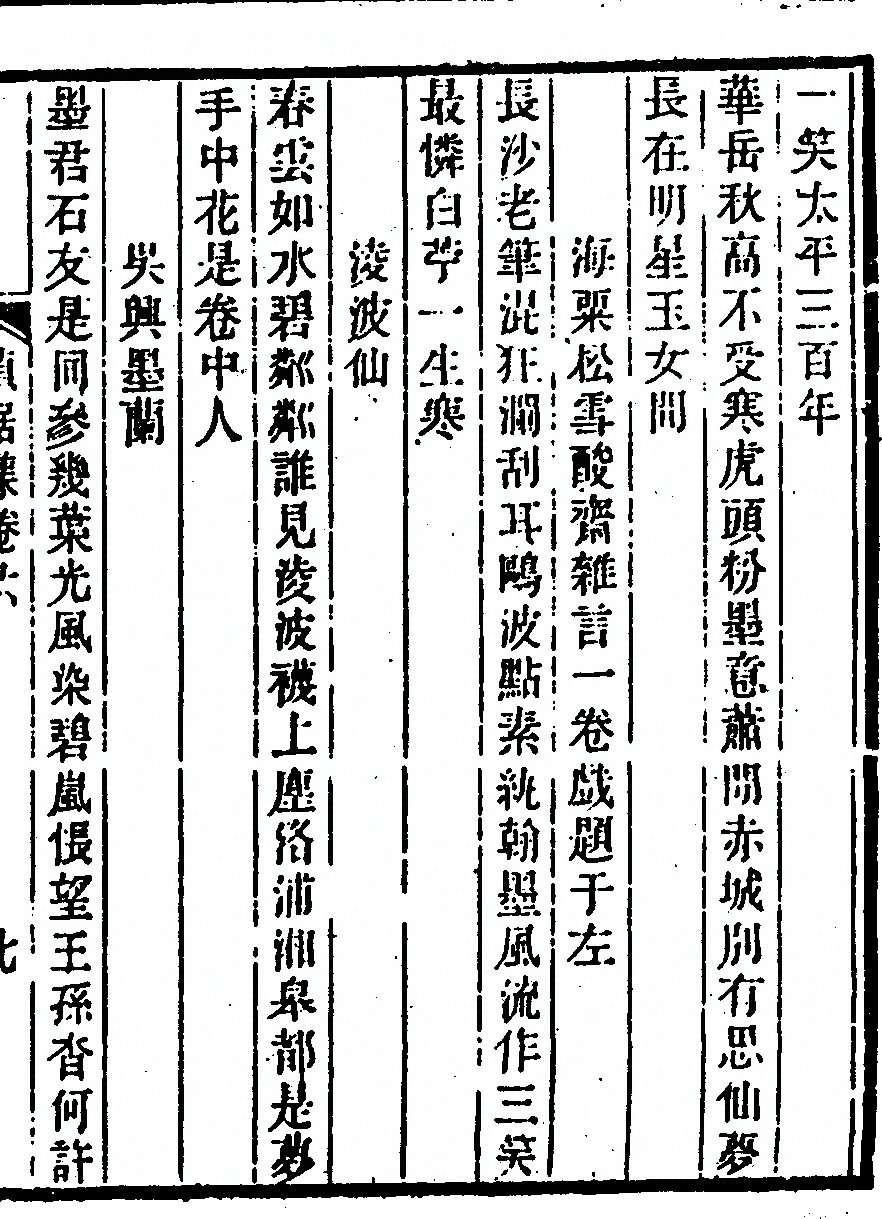 一笑太平三百年
華岳秋高不受寒虎頭粉墨意蕭閒赤城別有思仙夢
長在明星玉女間
海粟松雪酸齋雜言一卷戲題于左
長沙老筆混狂瀾刮耳鷗波點素紈翰墨風流作三笑
最憐白苧一生寒
淩波仙
春雲如水碧粼粼誰見淩波襪上塵洛浦湘皋都是夢
手中花是卷中人
吳興墨蘭
墨君石友是同參幾葉光風染碧嵐悵望王孫杳何許